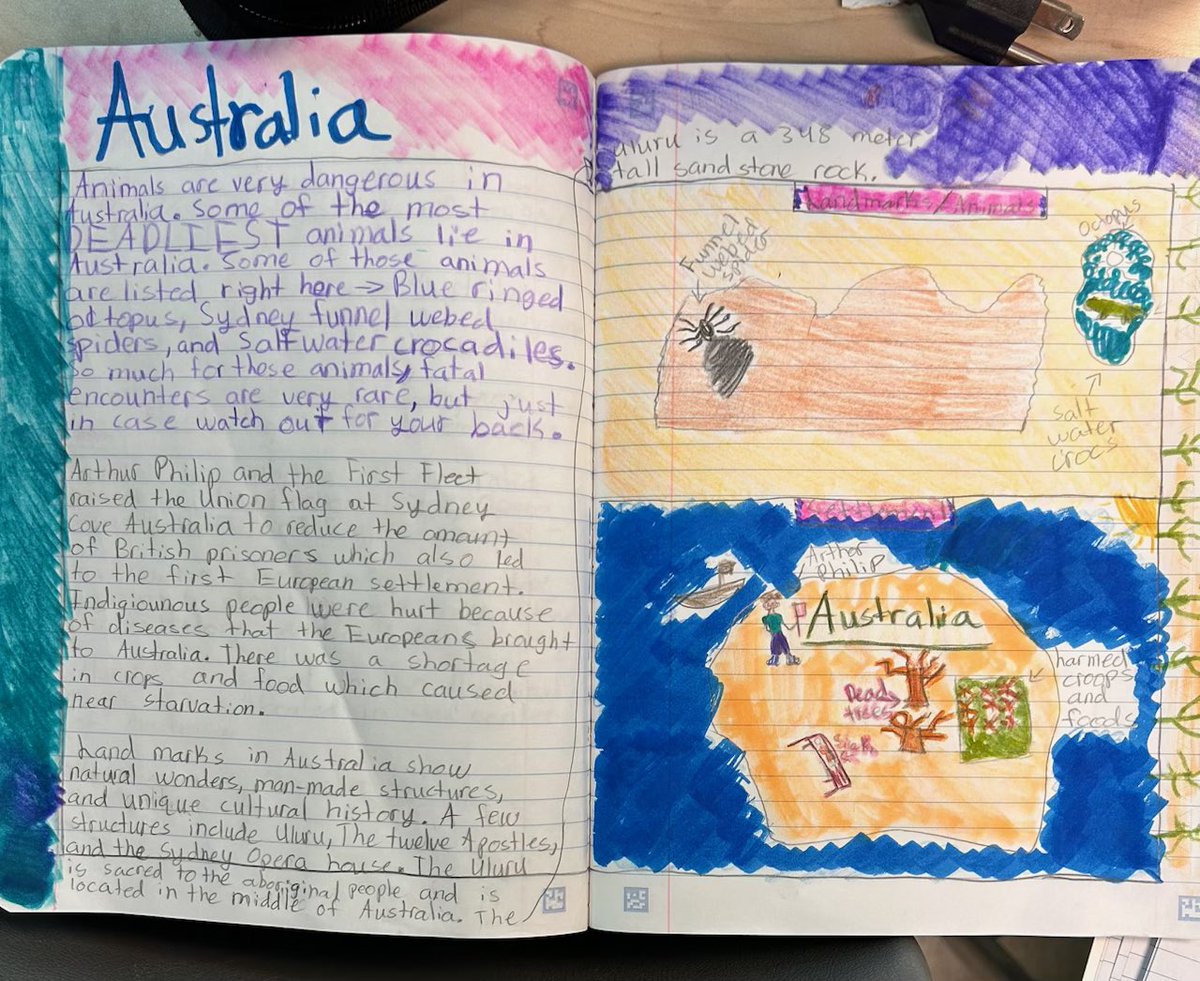 Australia
Animals are very dangerous in
Australia. Some of the most
DEADLIEST animals lie in
Australia. Some of those animals
are listed right here → Blue ringed
octopus, Sydney funnel webed
spiders, and Saltwater crocadiles.
So much for those animals, fatal
encounters are very rare, but just
in case watch out for your back.
Arthur Philip and the First Fleet
raised the Union flag at Sydney
Cove Australia to reduce the amount
of British prisoners which also led
to the first European settlement.
Indigiounous people were hurt because
of diseases that the Europeans brought
to Australia. There was a shortage
in crops and food which caused
near starvation.
Land marks in Australia show
natural wonders, man-made structures,
and unique cultural history. A few
structures include Uluru, The twelve Apostles,
and the Sydney Opera house. The Uluru
is sacred to the aboriginal people and is
located in the middle of Australia. The
uluru is a 348 meter
tall sand stone rock.
Landmarks/Animals
Funnel
webed
spider
Octopus
salt
water
crocs
Arthor
Philip
Australia
Dead
trees
harmed
croops
and
foods